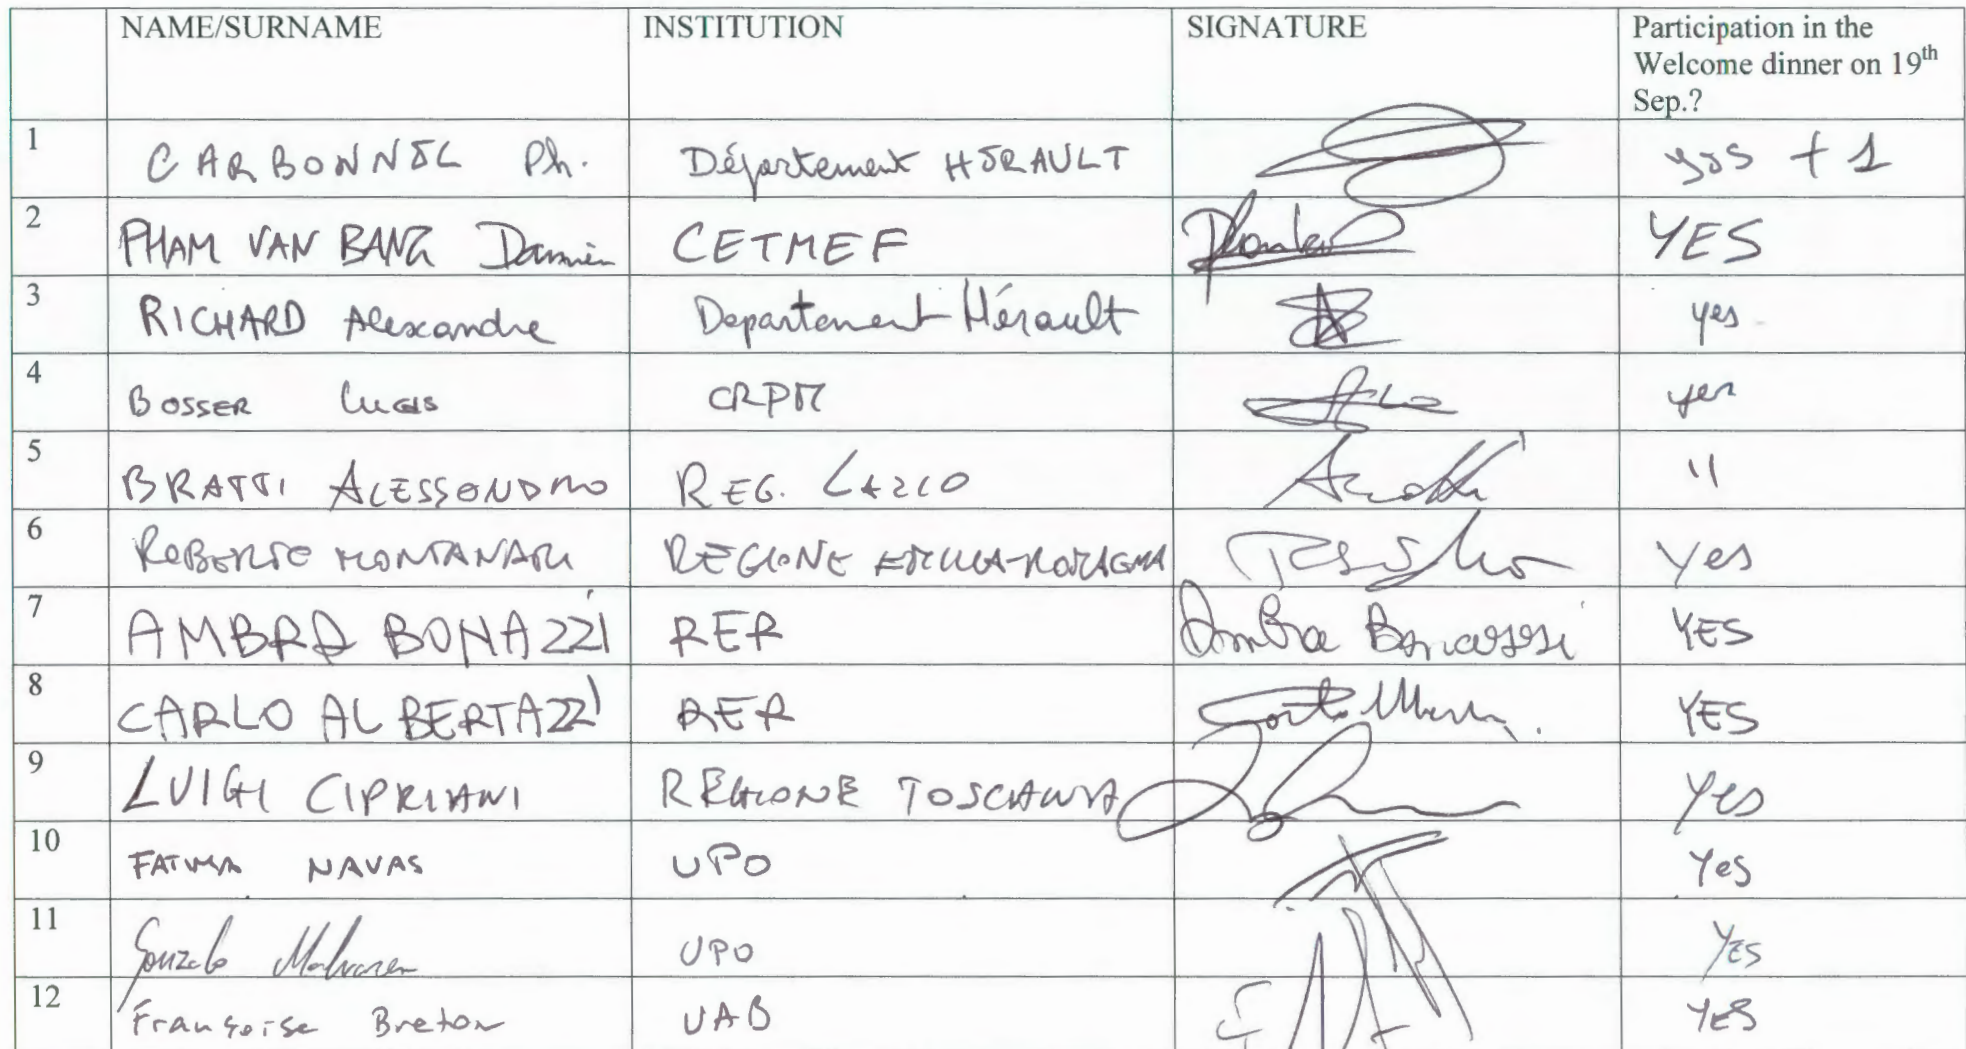 NAME/SURNAME INSTITUTION SIGNATURE Participation in the
Welcome dinner on 19th
Sep.?
1 CARBONNEL Ph. Département HERAULT yes + 1
2 PHAM VAN BANG Damien CETMEF YES
3 RICHARD Alexandre Departement Hérault yes
4 BOSSER Lucas CRPM yes
5 BRATTI ALESSANDRO REG. LAZIO "
6 ROBERTO MONTANARI REGIONE EMILIA-ROMAGNA Yes
7 AMBRA BONAZZI RER Ambra Bonazzi YES
8 CARLO ALBERTAZZI RER YES
9 LUIGI CIPRIANI REGIONE TOSCANA Yes
10 FATIMA NAVAS UPO Yes
11 Gonzalo Malvarez UPO Yes
12 Françoise Breton UAB YES